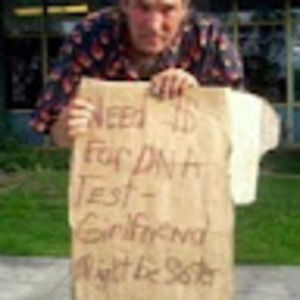 NEED $
For DNA
TEST -
Girlfriend
Might be Sister